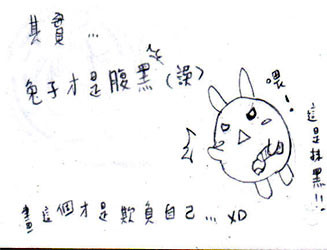 其實...
兔子才是腹黑(誤)
喂!
這是抹黑!!
畫這個才是欺負自己... XD